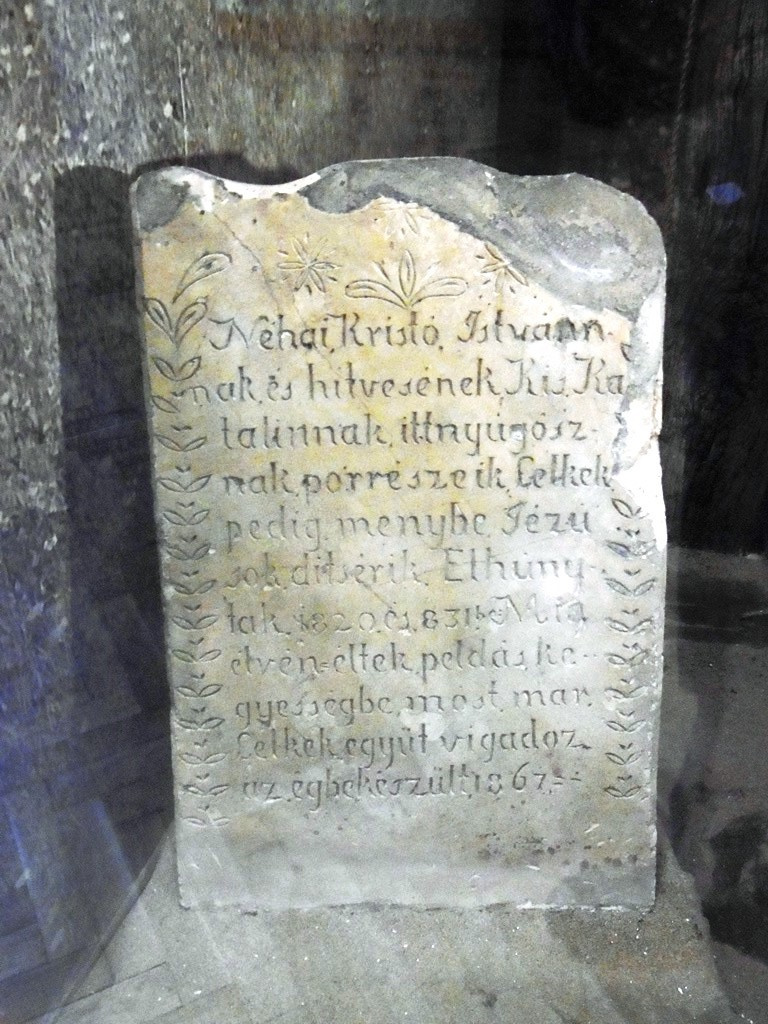 Néhai, Kristó, Istvánn-
nak, és hitvesének, Kis, Ka
talinnak, ittnyúgósz-
nak, pórrészeik, Lelkek
pedig, menybe, Jézú
sok, ditsérik, Elhúny-
tak, 1820, és, 831be Mig
elvén=éltek, példás, ke-
gyességbe, móst, mar,
Lelkek, együt vigadoz,
az, égbe készült, 1867,=